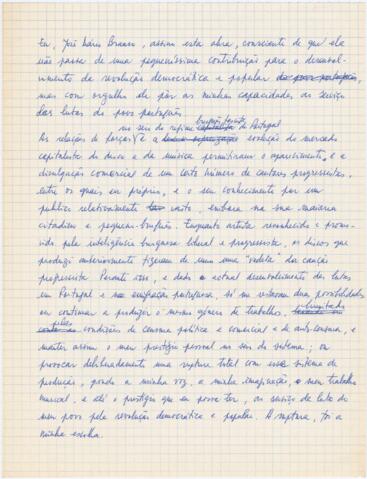 Eu, José Mário Branco, assino esta obra, consciente de que ela
não passa de uma pequeníssima contribuição para o desenvol-
vimento da revolução democrática e popular do povo português,
mas com orgulho de pôr as minhas capacidades ao serviço
das lutas do povo português.
burguês-fascista
no seio do regime capitalista de Portugal
As relações de forças e a evolução do mercado
capitalista do disco e da música permitiram o aparecimento, e a
divulgação comercial de um certo número de cantores progressistas,
entre os quais eu próprio, e o seu conhecimento por um
público relativamente vasto, embora na sua maioria
citadino e pequeno-burguês. Enquanto artista reconhecido e promo-
vido pela inteligência burguesa liberal e progressista, os discos que
produzi anteriormente fizeram de mim uma "vedeta" da canção
progressista. Perante isso, e dado o actual desenvolvimento das lutas
em Portugal e na emigração portuguesa, só me restavam duas possibilidades:
ou continuar a produzir o mesmo género de trabalho, limitado
pelas condições de censura política e comercial e de auto-censura, e
manter assim o meu prestígio pessoal no seio do sistema; ou
provocar deliberadamente uma ruptura total com esse sistema de
produção, pondo a minha voz, a minha imaginação, o meu trabalho
musical, e até o prestígio que eu possa ter, ao serviço da luta do
meu povo pela revolução democrática e popular. A ruptura, foi a
minha escolha.